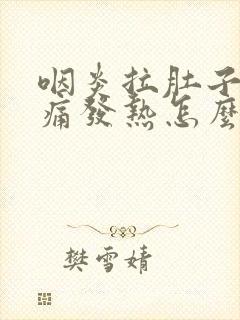 咽炎拉肚子
痛發熱怎麼
樊雪婧